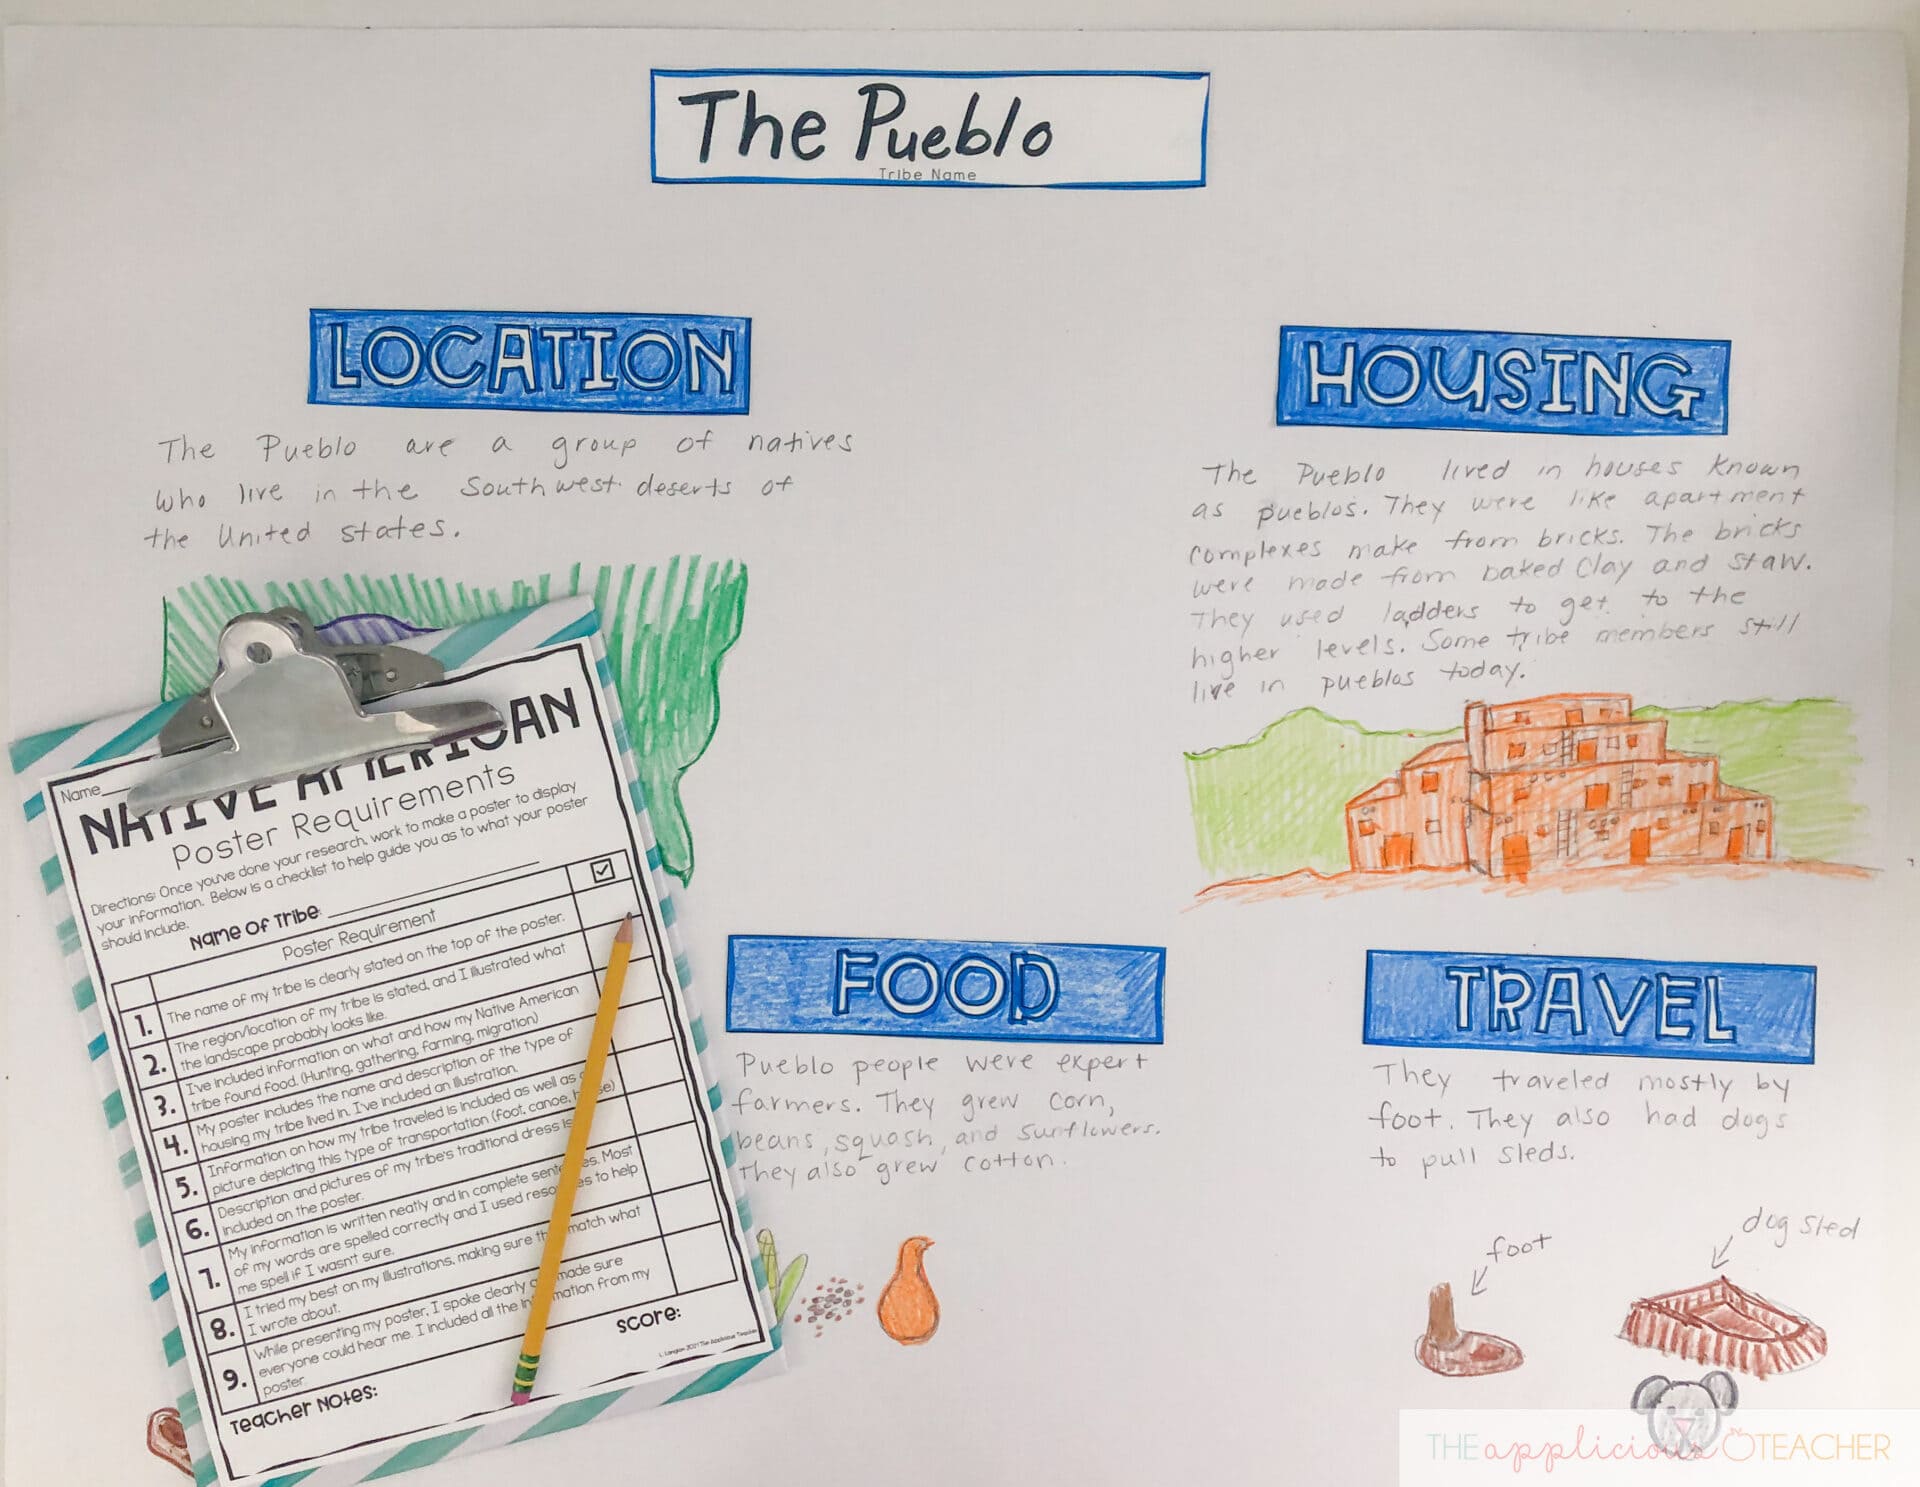 The Pueblo
Tribe Name
LOCATION
The Pueblo are a group of natives
who live in the Southwest deserts of
the United states.
HOUSING
The Pueblo lived in houses known
as pueblos. They were like apartment
complexes make from bricks. The bricks
were made from baked Clay and staw.
They used ladders to get to the
higher levels. Some tribe members still
live in pueblos today.
FOOD
Pueblo people were expert
farmers. They grew corn,
beans, squash, and sunflowers.
They also grew cotton.
TRAVEL
They traveled mostly by
foot. They also had dogs
to pull sleds.
foot
dog sled
Name
NATIVE AMERICAN
Poster Requirements
Directions: Once you've done your research, work to make a poster to display
your information. Below is a checklist to help guide you as to what your poster
should include.
Name of Tribe:
Poster Requirement
1. The name of my tribe is clearly stated on the top of the poster.
2. The region/location of my tribe is stated, and I illustrated what
the landscape probably looks like.
3. I've included information on what and how my Native American
tribe found food. (Hunting, gathering, farming, migration)
4. My poster includes the name and description of the type of
housing my tribe lived in. I've included an illustration.
5. Information on how my tribe traveled is included as well as a
picture depicting this type of transportation (foot, canoe, horse)
6. Description and pictures of my tribe's traditional dress is
included on the poster.
7. My information is written neatly and in complete sentences. Most
of my words are spelled correctly and I used resources to help
me spell if I wasn't sure.
8. I tried my best on my illustrations, making sure they match what
I wrote about.
9. While presenting my poster, I spoke clearly and made sure
everyone could hear me. I included all the information from my
poster.
Teacher Notes:
Score:
L. Langton 2021 The Applicious Teacher
THE applicious TEACHER